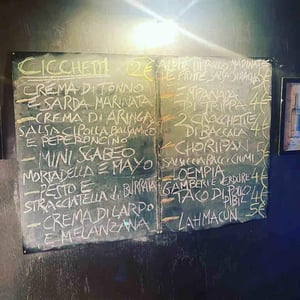 CICCHETTI 2€
CREMA DI TONNO
E SARDA MARINATA
CREMA DI ARINGA
SALSA CIPOLLA BALSAMICO
E PEPERONCINO
MINI SGABEO
MORTADELLA E MAYO
PESTO E
STRACCIATELLA di BURRATA
CREMA DI LARDO
E MELANZANA
ALETTE DI POLLO MARINATE
EMPANADA 4€
DI TRIPPA
2 CROCCHETTE
DI BACCALÀ
CHORIPAN 5€
SALSICCIA PACC CHIMI
LOEMPIA 4€
GAMBERI E VERDURE
TACO DI POLLO 4€
PIBIL
LAHMACUN 5€